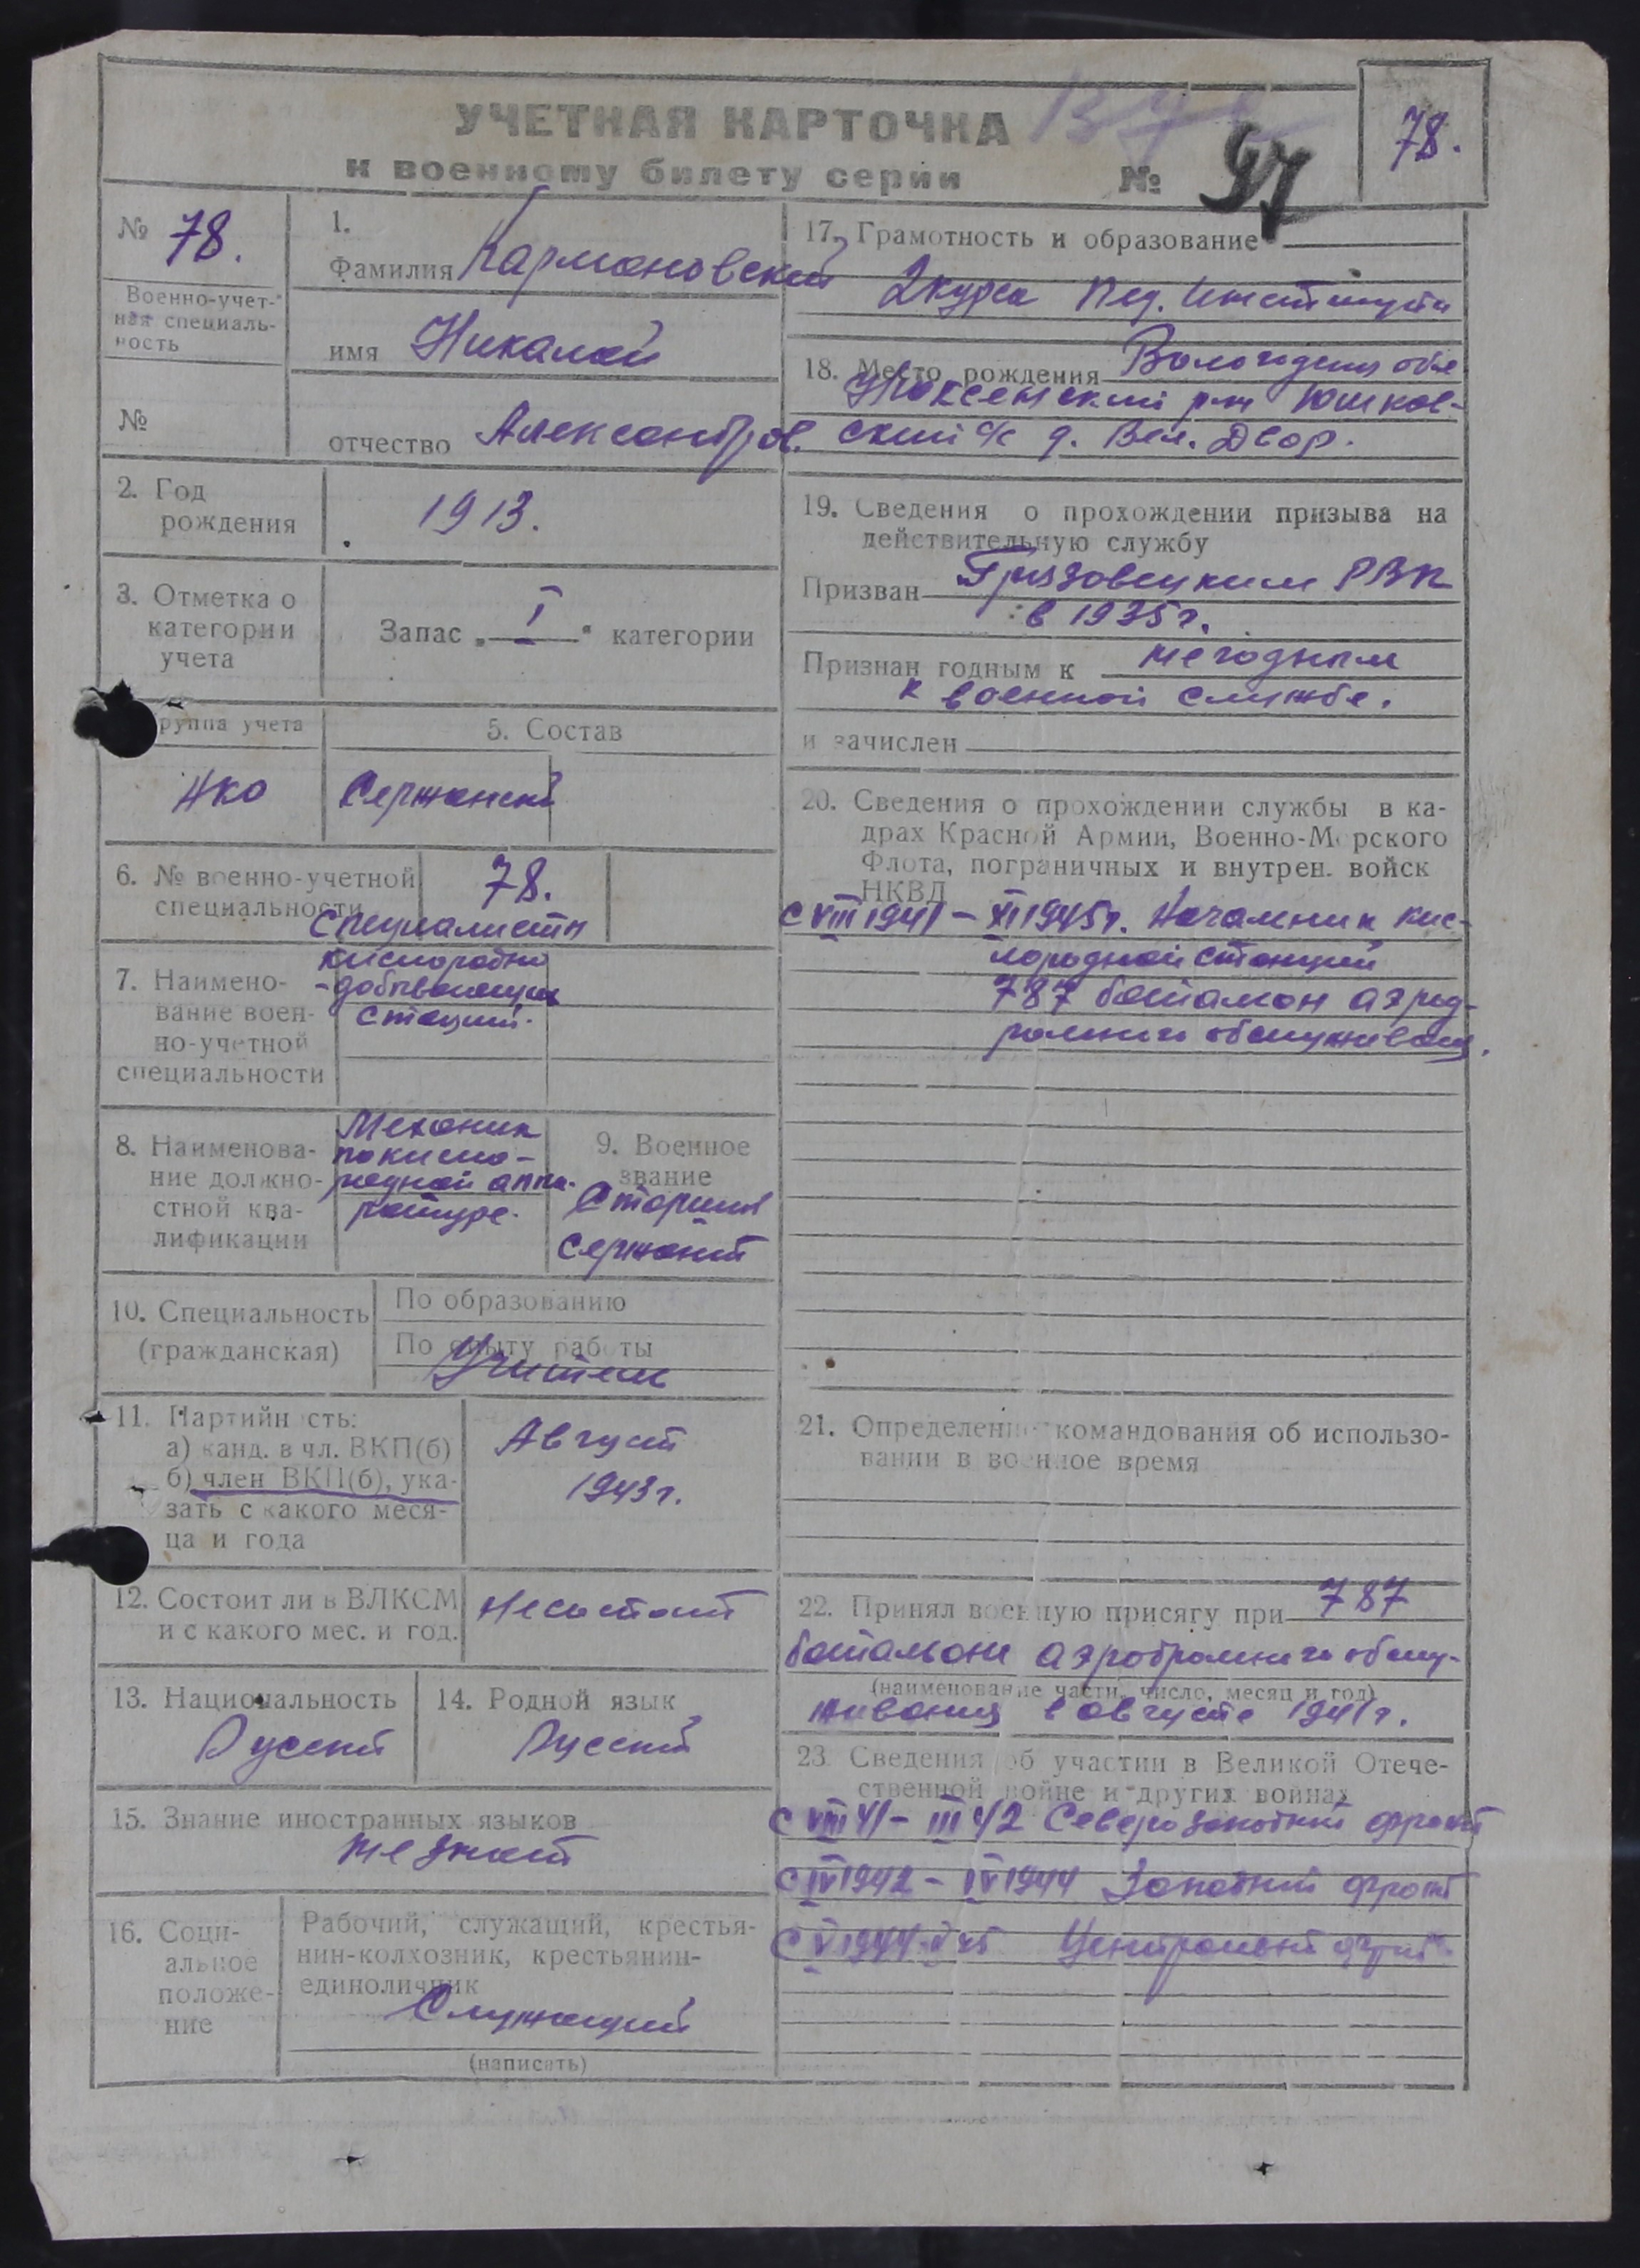 УЧЕТНАЯ КАРТОЧКА
к военному билету серии № 97
78.
№ 78.
Военно-учет-
ная специаль-
ность
№
1.
Фамилия Кармановский
имя Николай
отчество Александров.
2. Год
рождения
1913.
3. Отметка о
категории
учета
Запас „ I " категории
руппа учета
НКО
5. Состав
Сержанский
6. № военно-учетной
специальности
78.
7. Наимено-
вание воен-
но-учетной
специальности
Специалисты
кислородно
-добывающих
станций.
8. Наименова-
ние должно-
стной ква-
лификации
Механик
по кисло-
родной аппа-
ратуре.
9. Военное
звание
Старший
сержант
10. Специальность
(гражданская)
По образованию
По опыту работы
Учитель
11. Партийность:
а) канд. в чл. ВКП(б)
б) член ВКП(б), ука-
зать с какого меся-
ца и года
Август
1943 г.
12. Состоит ли в ВЛКСМ
и с какого мес. и год.
Не состоит
13. Национальность
Русский
14. Родной язык
Русский
15. Знание иностранных языков
не знает
16. Соци-
альное
положе-
ние
Рабочий, служащий, крестья-
нин-колхозник, крестьянин-
единоличник
Служащий
(написать)
17. Грамотность и образование
2 курса Пед. Института
18. Место рождения Вологодская обл
Нюксенский р-н Юшков-
ский с/с д. Вел. Двор.
19. Сведения о прохождении призыва на
действительную службу
Призван Грязовецким РВК
в 1935 г.
Признан годным к негодным
к военной службе.
и зачислен
20. Сведения о прохождении службы в ка-
драх Красной Армии, Военно-Морского
Флота, пограничных и внутрен. войск
НКВД
с VIII 1941 - XI 1945 г. Начальник кис-
лородной станции
787 батальон аэрод-
ромного обслуживания.
21. Определение командования об использо-
вании в военное время
22. Принял военную присягу при 787
батальоне аэродромного обслу-
(наименование части, число, месяц и год)
живания в августе 1941 г.
23. Сведения об участии в Великой Отече-
ственной войне и других войнах
с VIII 41 - III 42 Северозападный фронт
с IV 1942 - IV 1944 Западный фронт
с V 1944 - V 45 Центральный фронт